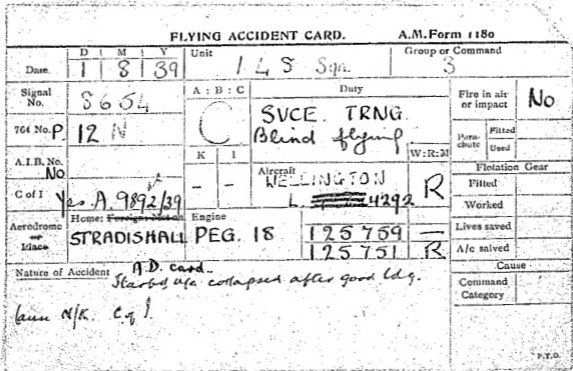 FLYING ACCIDENT CARD. A.M. Form 1180
D M Y Unit Group or Command
Date. 1 8 39 148 Sqn. 3
Signal No. S654 A : B : C Duty Fire in air or impact No
C SVCE. TRNG.
764 No. P. 12 N Blind flying Para-chute Fitted
Used
K I W:R:M
A.I.B. No. No Flotation Gear
Aircraft WELLINGTON Fitted
C of I Yes A. 9892/39 – – L. 4292 R Worked
Aerodrome or Place Home: Foreign Station Engine Lives saved
STRADISHALL PEG. 18 125759 —
125751 R A/c salved
Nature of Accident A.D. card. Cause
Starbd u/c collapsed after good ldg. Command Category
Cause N/K. C of I.
P.T.O.